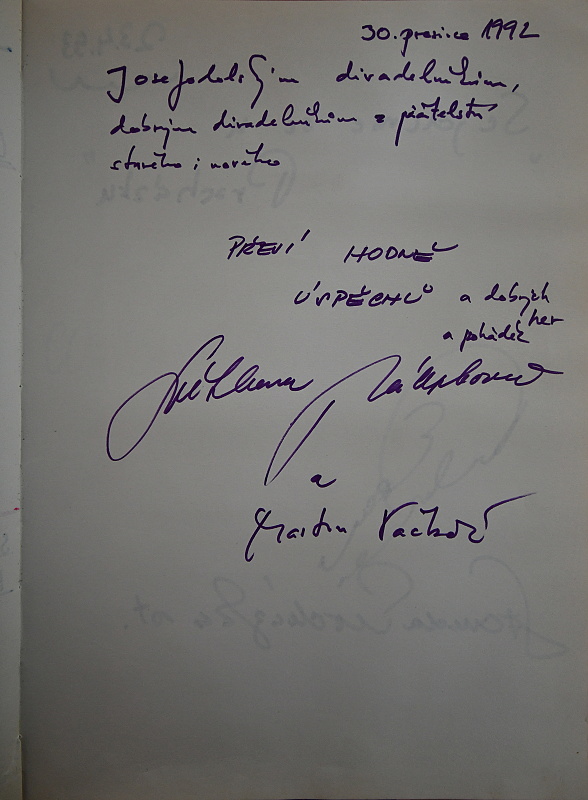 30. prosince 1992
Josefodolským divadelníkům,
dobrým divadelníkům z přátelství
starého i nového
PŘEJÍ HODNĚ
ÚSPĚCHŮ a dobrých
her
a pohádek
Světlana
a
Martin